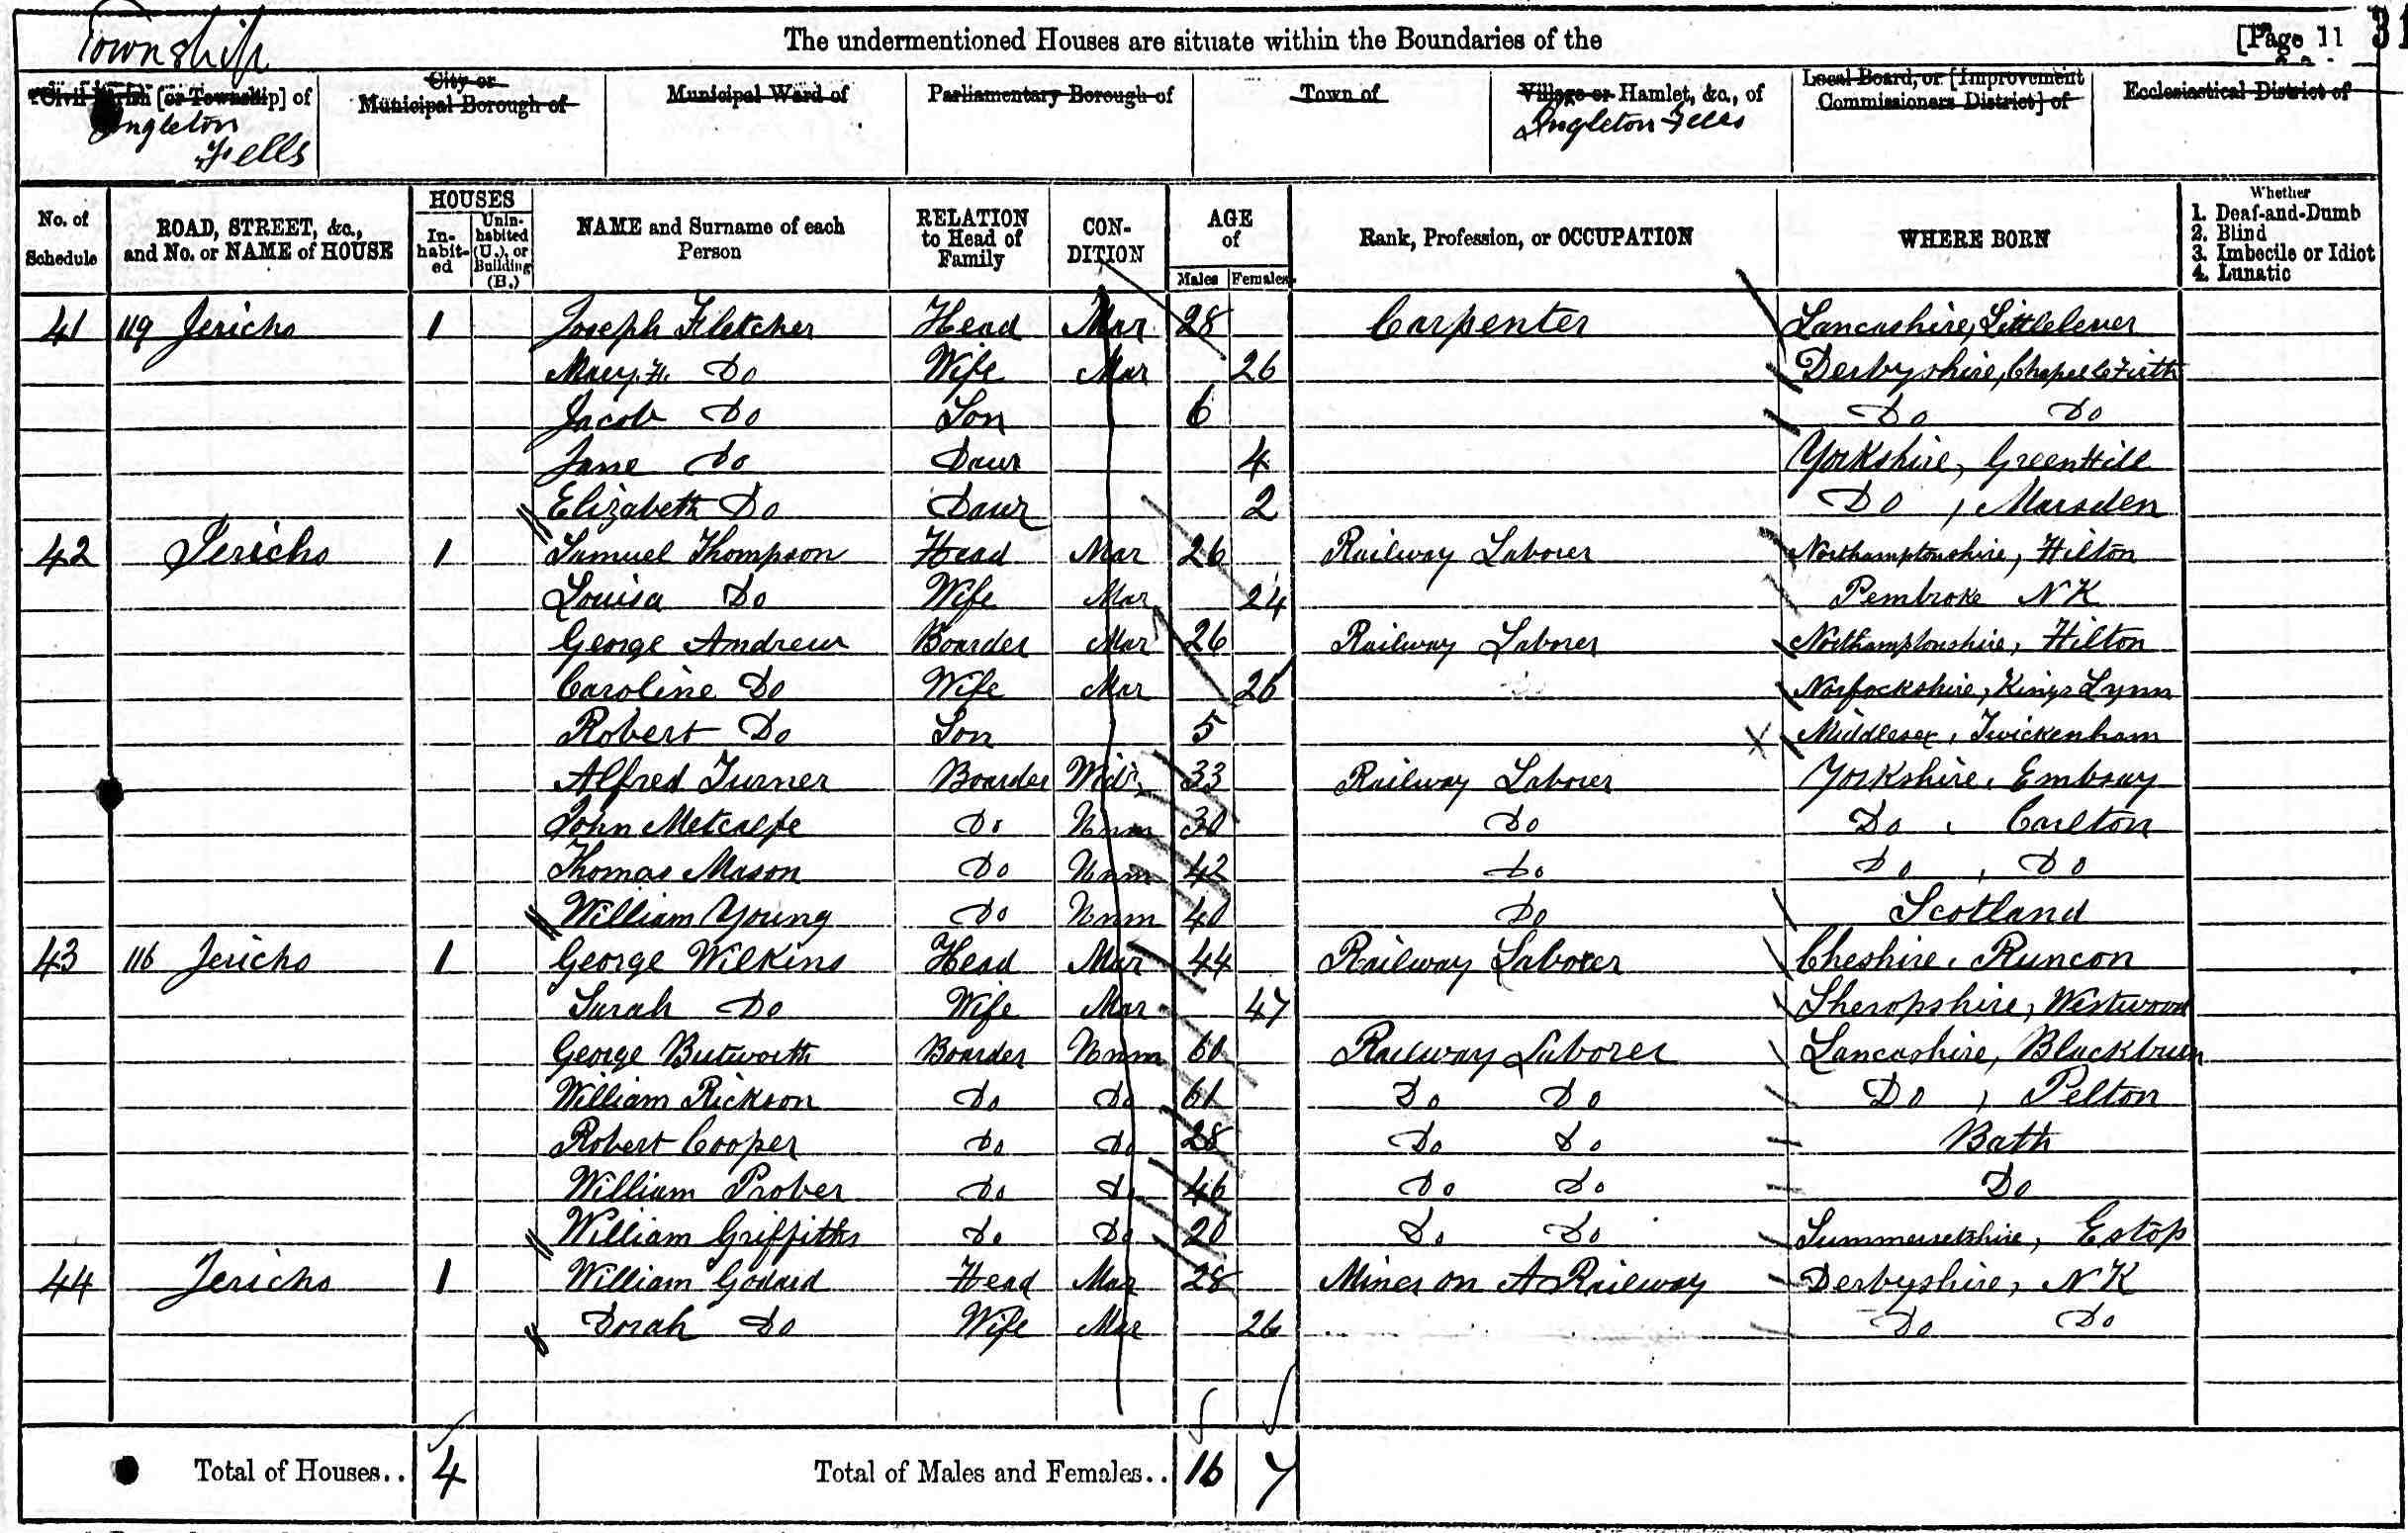 Township
The undermentioned Houses are situate within the Boundaries of the
[Page 11
31
Civil Parish [or Township] of
Ingleton
Fells
City or
Municipal Borough of
Municipal Ward of
Parliamentary Borough of
Town of
Village or Hamlet, &c., of
Ingleton Fells
Local Board, or [Improvement
Commissioners District] of
Ecclesiastical District of
No. of
Schedule
ROAD, STREET, &c.,
and No. or NAME of HOUSE
HOUSES
In-
habit-
ed
Unin-
habited
(U.), or
Building
(B.)
NAME and Surname of each
Person
RELATION
to Head of
Family
CON-
DITION
AGE
of
Males Females
Rank, Profession, or OCCUPATION
WHERE BORN
Whether
1. Deaf-and-Dumb
2. Blind
3. Imbecile or Idiot
4. Lunatic
41 119 Jericho 1 Joseph Fletcher Head Mar 28 Carpenter Lancashire, Littlelever
Mary. H. Do Wife Mar 26 Derbyshire, Chapel le Firth
Jacob Do Son 6 Do Do
Jane Do Daur 4 Yorkshire, Green Hill
Elizabeth Do Daur 2 Do , Marsden
42 Jericho 1 Samuel Thompson Head Mar 26 Railway Laborer Northamptonshire, Hilton
Louisa Do Wife Mar 24 Pembroke N K
George Andrew Boarder Mar 26 Railway Laborer Northamptonshire, Hilton
Caroline Do Wife Mar 26 Norfockshire, Kings Lynn
Robert Do Son 5 Middlesex, Twickenham
Alfred Turner Boarder Widr 33 Railway Laborer Yorkshire, Embsay
John Metcalfe Do Unm 30 Do Do , Carlton
Thomas Mason Do Unm 42 Do Do , Do
William Young Do Unm 40 Do Scotland
43 116 Jericho 1 George Wilkins Head Mar 44 Railway Laborer Cheshire, Runcon
Sarah Do Wife Mar 47 Sheropshire, Westwood
George Butworth Boarder Unm 60 Railway Laborer Lancashire, Blackburn
William Rickson Do Do 61 Do Do Do , Pelton
Robert Cooper Do Do 28 Do Do Bath
William Prober Do Do 46 Do Do Do
William Griffiths Do Do 20 Do Do Summersetshire, Estop
44 Jericho 1 William Godard Head Mar 28 Miner on A Railway Derbyshire, N K
Dorah Do Wife Mar 26 Do Do
Total of Houses.. 4 Total of Males and Females.. 16 7